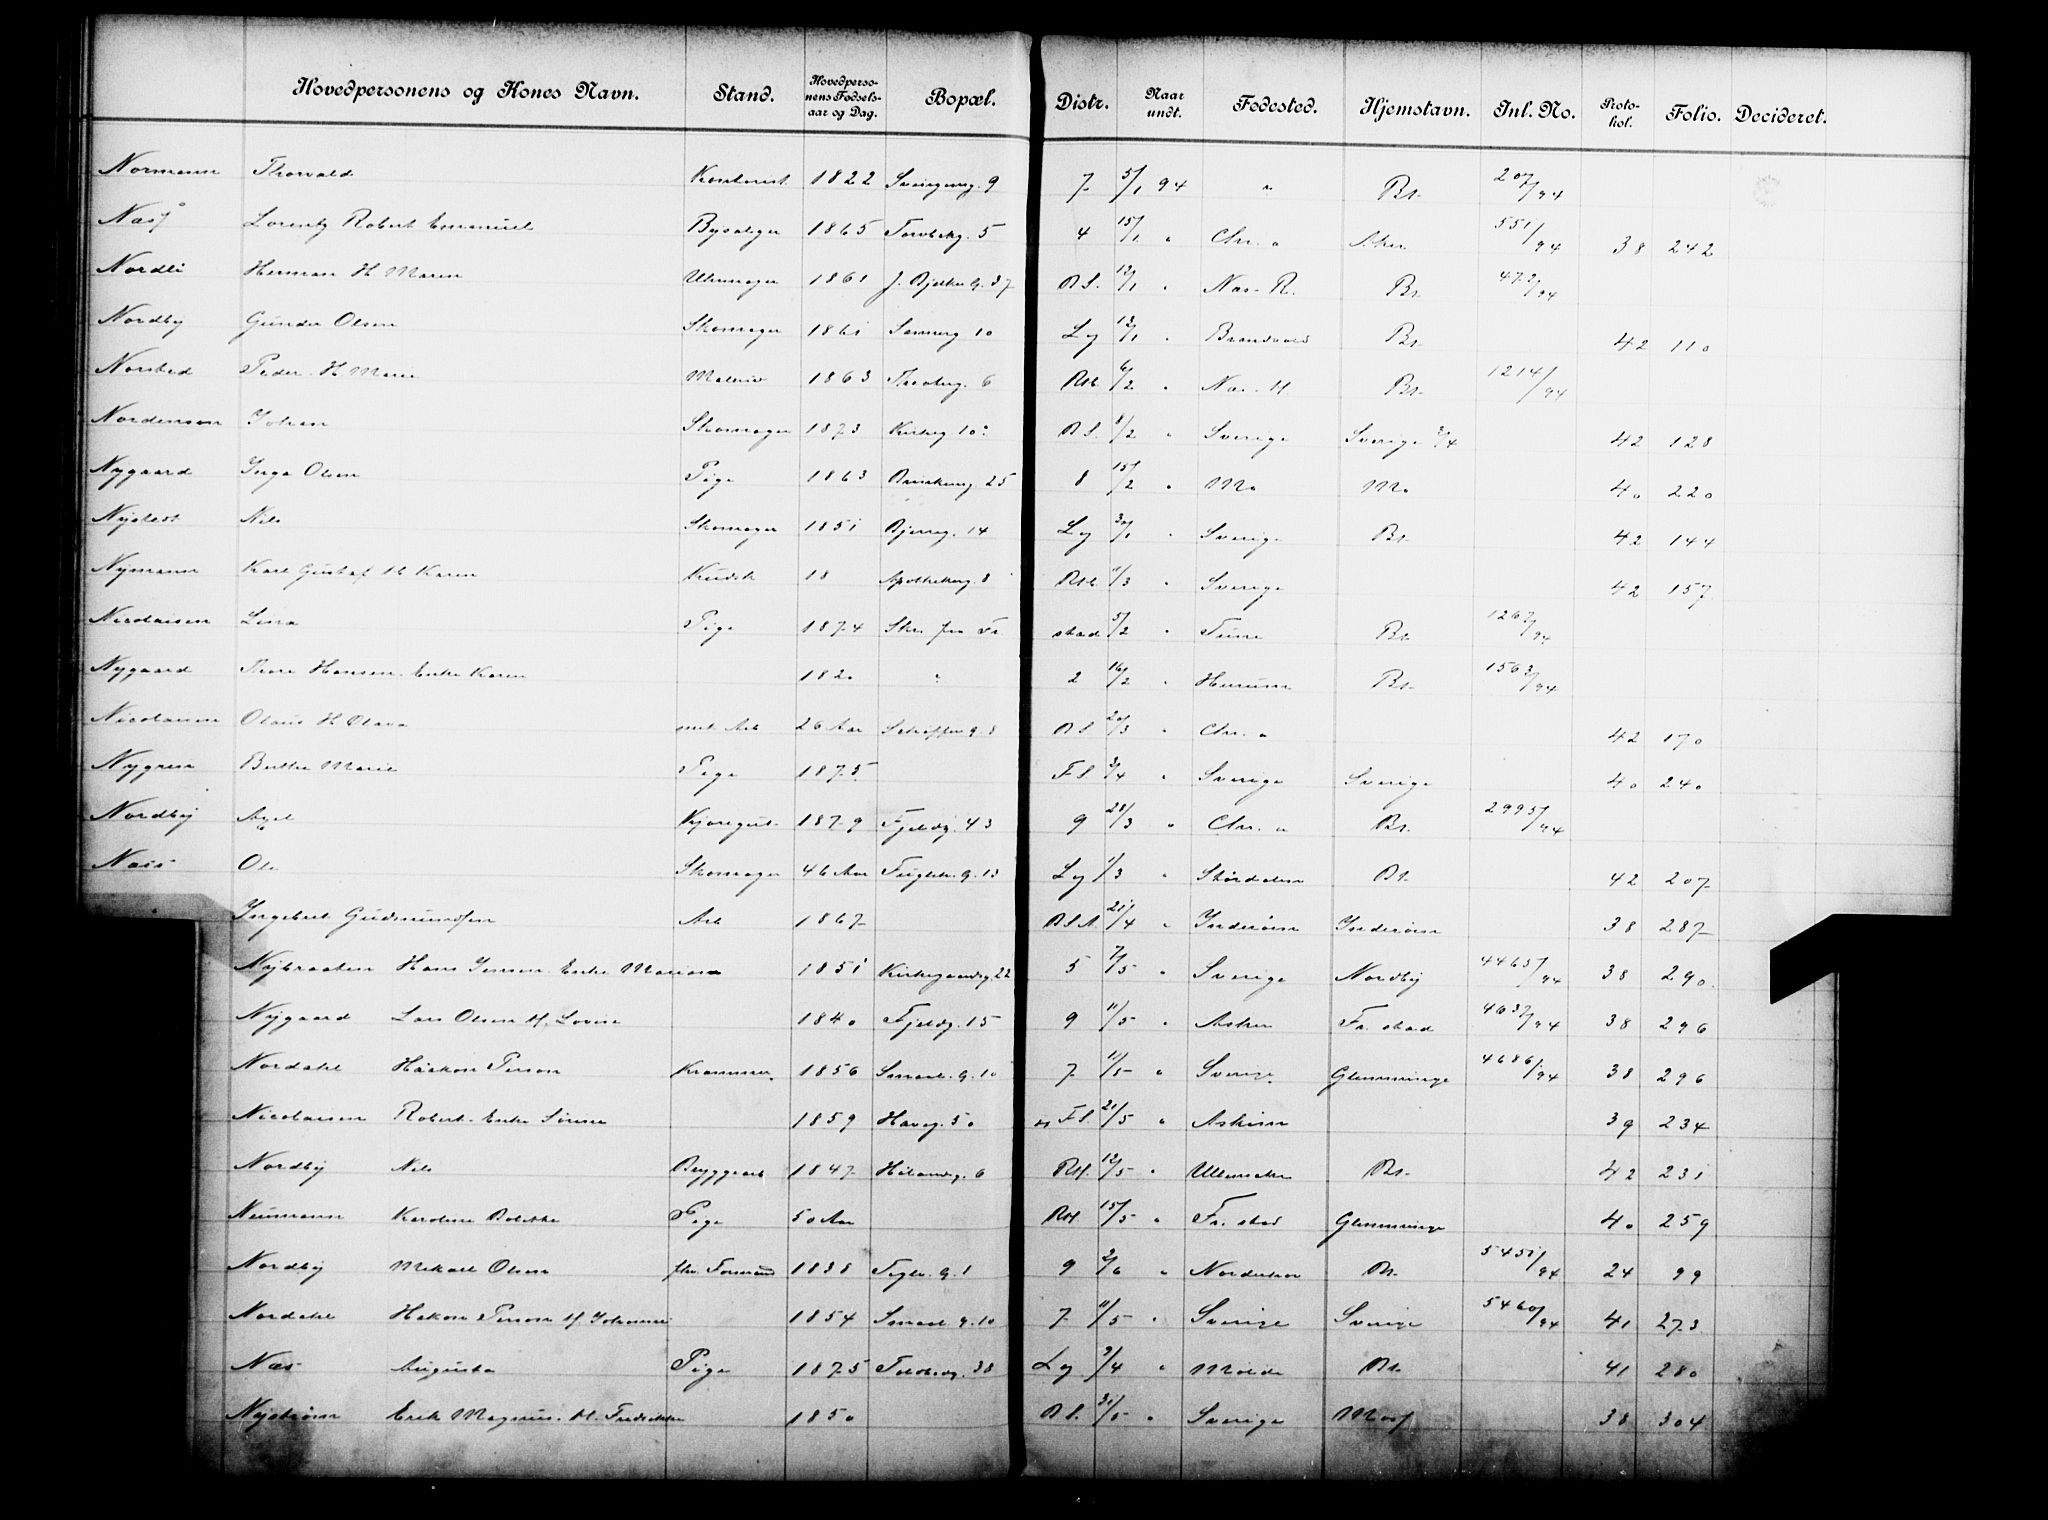 Hovedpersonens og Kones Navn. Stand. Hovedpersonens Fødselsaar og Dag. Bopæl. Distr. Naar undt. Fødested. Hjemstavn. Inl. No. Protokol. Folio. Decideret.
Normann Thorvald Kontorist 1822 9 7 5/1 94 " Bt. 207/94
Næss Lorentz Robert Emanuel 1865 5 4 15/1 " Chr. a Aker 551/94 38 242
Nordli Herman H Maren Uhrmager 1861 J. Bjelkes G. 37 B S. 12/1 " Næs. R. Bt. 472/94
Nordby Gunder Olsen Skomager 1861 10 Lg 12/1 " Brandvold Bt. 42 110
Norstad Peder H Marie 1863 6 RH. 6/2 " Næs. H. Bt. 1214/94
Nordenson Johan Skomager 1873 Kirkeg 10 B S. 8/2 " Sverige Sverige 42 128
Nygaard Inga Olsen Pige 1863 25 8 15/2 " Mo Mo 40 220
Nystedt Nils Skomager 1851 14 Lg 30/1 " Sverige Bt. 42 144
Nymann Karl Gustaf H Karen Kudsk 18 Apothekerg. 8 RH. 1/3 " Sverige 42 157
Nicolaisen Lina Pige 1874 Skr. fra Fr stad 5/2 " Tune Bt. 1267/94
Nygaard Thore Hansen Enke Karen 1820 " 2 16/2 " Hurum Bt. 1563/94
Nicolaisen Olaus H Olava 26 Aar 8 B S 20/3 " Chr. a 42 170
Nygren Berthe Marie Pige 1875 F S. 3/4 " Sverige Sverige 40 240
Nordby Axel Kjøregut 1879 Fjeldg. 43 9 28/3 " Chr. a Bt. 2995/94
Næss Ole Skomager 46 Aar 13 Lg 1/3 " Stördalen Bt. 42 207
Ingebret Gudmundsen Arb 1867 B S A. 21/4 " Inderøen Inderøen 38 287
Nybraaten Hans Jensen Enke Mariane 1851 Kirkegaardsg. 22 5 7/5 " Sverige Nordby 4465/94 38 290
Nygaard Lars Olsen H. Lovise 1840 Fjeldg. 15 9 11/5 " Asker Fr. stad 4637/94 38 296
Nordahl Håkon Person 1856 10 7 11/5 " Sverige Glemminge 4686/94 38 296
Nicolaisen Robert Enke Sørine 1859 Haveg. 50 F S. 21/5 " Askim 39 234
Nordby Nils Bryggearb 1847 6 RH. 12/5 " Ullensaker Bt. 42 231
Neumann Karoline Bolette Pige 50 Aar RH. 15/5 " Fr. stad Glemminge 40 259
Nordby Mikael Olsen fhv. Formand 1838 1 9 2/6 " Norderhov Bt. 5451/94 24 99
Nordahl Håkon Person H. Johanne 1854 10 7 11/5 " Sverige Sverige 5460/94 41 273
Næs Augusta Pige 1875 38 Lg 9/4 " Molde Bt. 41 280
Nystrøm Erik Magnus H. Fredrikke 1850 B S. 31/5 " Sverige Moss 38 304